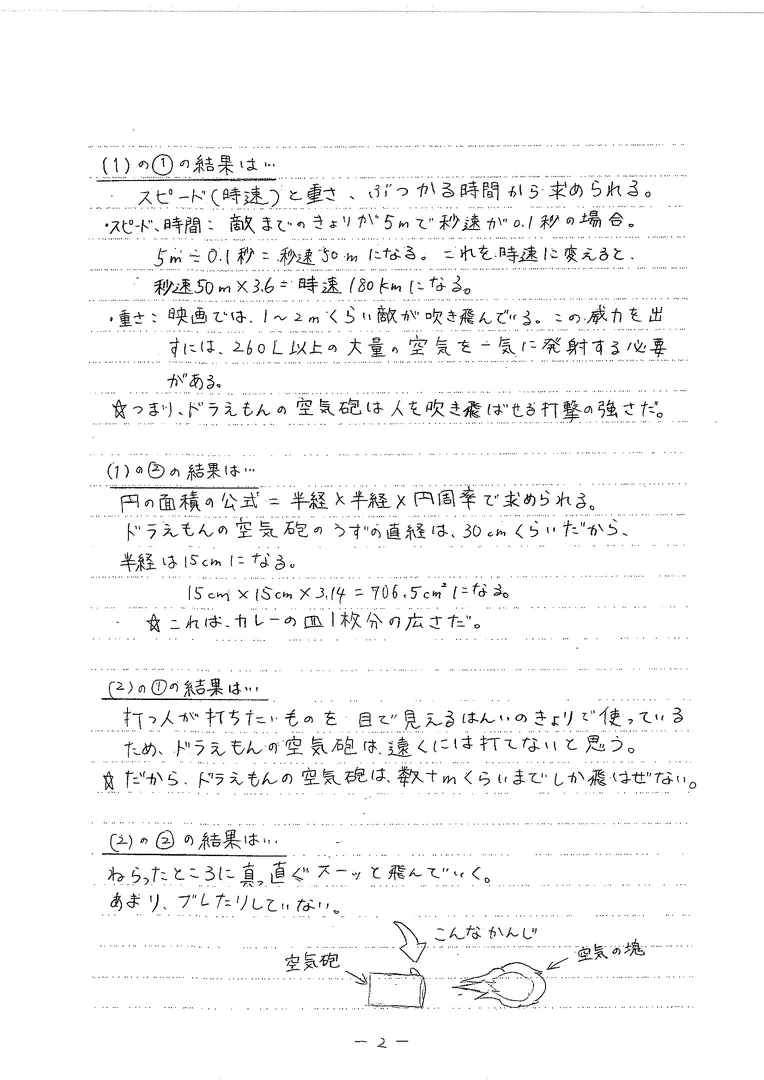 (1)の①の結果は…
スピード(時速)と重さ、ぶつかる時間から求められる。
・スピード、時間：敵までのきょりが5mで秒速が0.1秒の場合。
5m÷0.1秒=秒速50mになる。これを時速に変えると、
秒速50m×3.6=時速180kmになる。
・重さ：映画では、1〜2mくらい敵が吹き飛んでいる。この威力を出
すには、260L以上の大量の空気を一気に発射する必要
がある。
☆つまり、ドラえもんの空気砲は人を吹き飛ばせる打撃の強さだ。
(1)の②の結果は…
円の面積の公式=半経×半経×円周率で求められる。
ドラえもんの空気砲のうずの直経は、30cmくらいだから、
半経は15cmになる。
15cm×15cm×3.14=706.5cm²になる。
☆これは、カレーの皿1枚分の広さだ。
(2)の①の結果は…
打つ人が打ちたいものを目で見えるはんいのきょりで使っている
ため、ドラえもんの空気砲は、遠くには打てないと思う。
☆だから、ドラえもんの空気砲は、数十mくらいまでしか飛はぜない。
(2)の②の結果は…
ねらったところに真っ直ぐスーッと飛んでいく。
あまり、ブレたりしていない。
こんなかんじ
空気砲
空気の塊
— 2 —